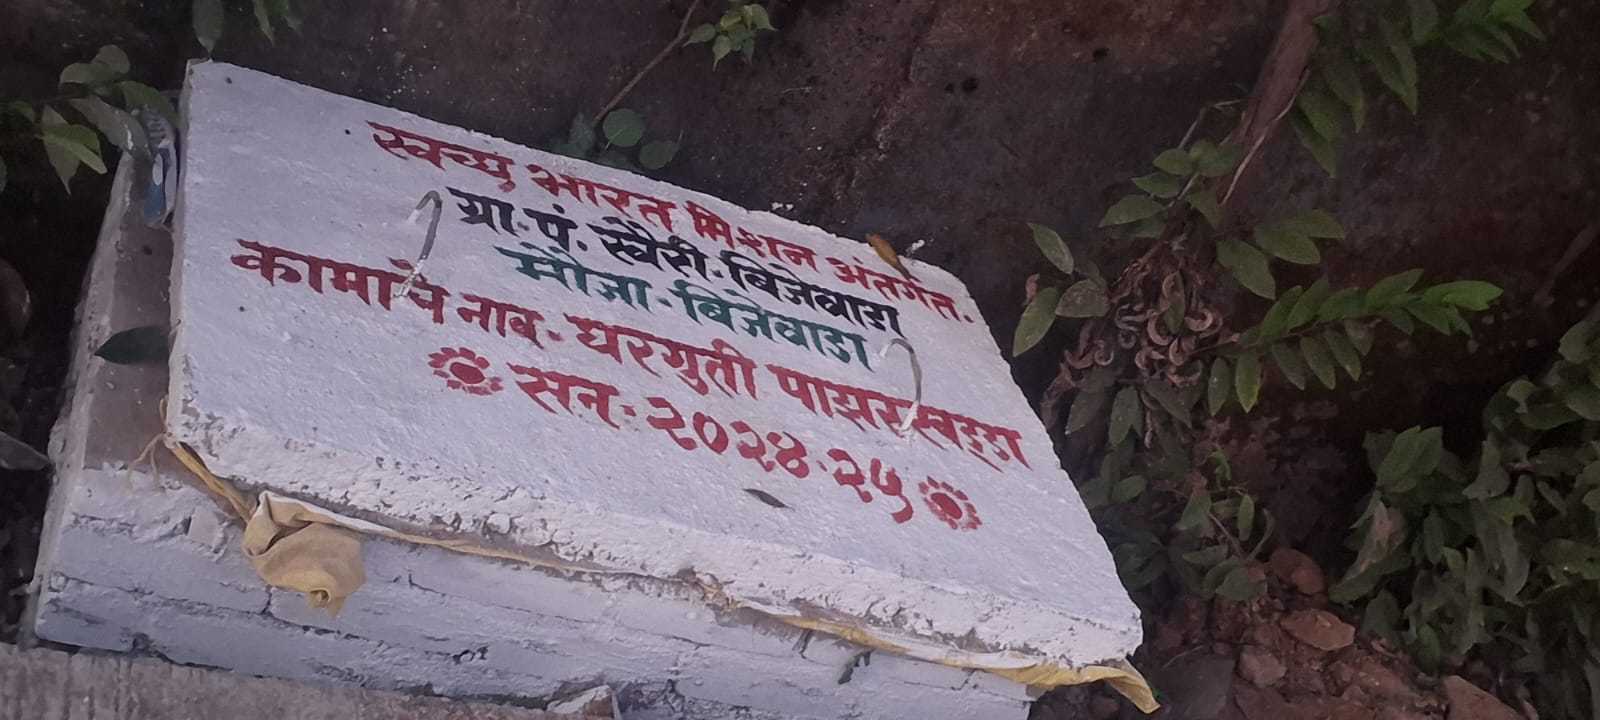 स्वच्छ भारत मिशन अंतर्गत.
ग्रा.पं. खैरी.बिजेवाडा
मौजा.बिजेवाडा
कामाचे नाव. घरगुती पाझरखड्डा
सन. २०२४.२५